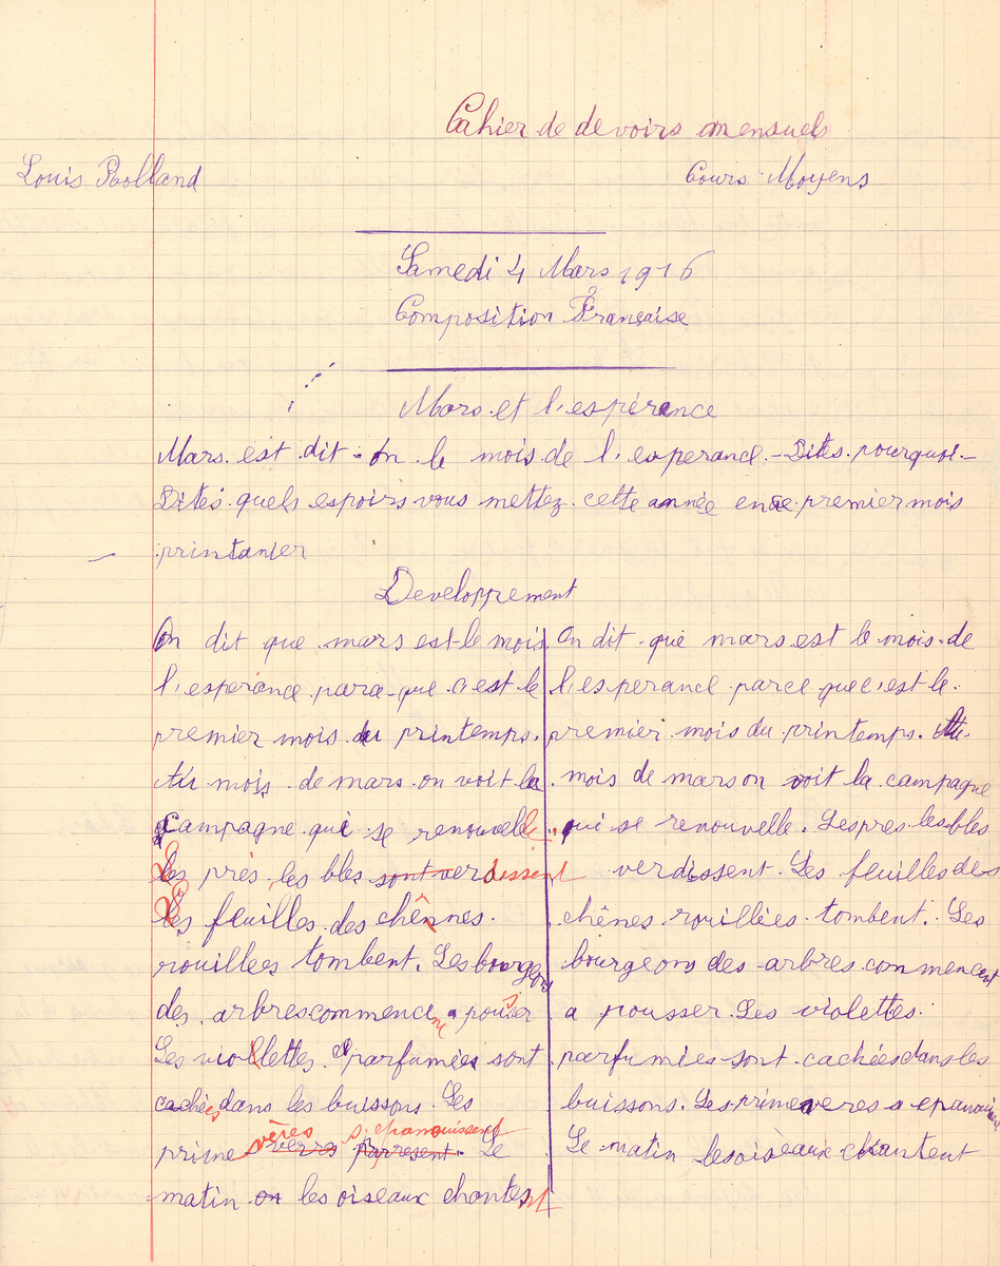 Cahier de devoirs mensuels
Louis Rolland
Cours Moyens
Samedi 4 Mars 1916
Composition Française
Mars et l'espérance
Mars est dit-on le mois de l'esperance - Dites pourquoi -
Dites quels espoirs vous mettez cette année en ce premier mois
printanier
Developpement
On dit que mars est le mois
l'esperance parce que c'est le
premier mois du printemps.
Au mois de mars on voit la
campagne qui se renouvelle.
Les prés, les bles sont verdissent
Les feuilles des chênnes
rouillees tombent. Les bourgeons
des arbres commence a pousser
Les viollettes parfumées sont
cachées dans les buissons. Les
vères s'épanouissent
prime verres parresent. Le
matin on les oiseaux chantent
On dit que mars est le mois de
l'esperance parce que c'est le
premier mois du printemps. Au
mois de mars on voit la campagne
qui se renouvelle. Les pres les bles
verdissent. Les feuilles des
chênes rouillées tombent. Les
bourgeons des arbres commencent
a pousser. Les violettes
parfumées sont cachées dans les
buissons. Les primeveres s epanouissent
Le matin les oiseaux chantent